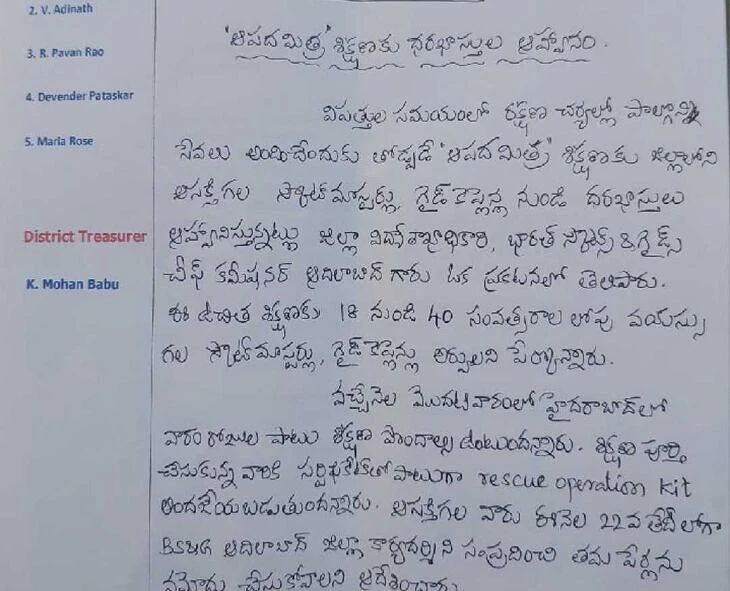 2. V. Adinath
3. R. Pavan Rao
4. Devender Pataskar
5. Maria Rose
District Treasurer
K. Mohan Babu
'ఆపదమిత్ర' శిక్షణకు దరఖాస్తుల ఆహ్వానం.
విపత్తుల సమయంలో రక్షణ చర్యల్లో పాల్గొన్ని
సేవలు అందించేందుకు తోడ్పడే 'ఆపదమిత్ర' శిక్షణకు జిల్లాలోని
ఆసక్తిగల స్కౌట్ మాస్టర్లు, గైడ్ కెప్టెన్ల నుండి దరఖాస్తులు
ఆహ్వానిస్తున్నట్లు జిల్లా విద్యాశాఖాధికారి, భారత్ స్కౌట్స్ & గైడ్స్
చీఫ్ కమీషనర్ ఆదిలాబాద్ గారు ఒక ప్రకటనలో తెలిపారు.
ఈ ఉచిత శిక్షణకు 18 నుండి 40 సంవత్సరాల లోపు వయస్సు
గల స్కౌట్ మాస్టర్లు, గైడ్ కెప్టెన్లు అర్హులని పేర్కొన్నారు.
వచ్చేనెల మొదటివారంలో హైదరాబాద్ లో
వారం రోజుల పాటు శిక్షణ పొందాల్సి ఉంటుందన్నారు. శిక్షణ పూర్తి
చేసుకున్న వారికి సర్టిఫికేట్ తో పాటుగా rescue operation kit
అందజేయబడుతుందన్నారు. ఆసక్తిగల వారు ఈనెల 22వ తేదీలోగా
BS&G ఆదిలాబాద్ జిల్లా కార్యదర్శిని సంప్రదించి తమ పేర్లను
నమోదు చేసుకోవాలని ఆదేశించారు.